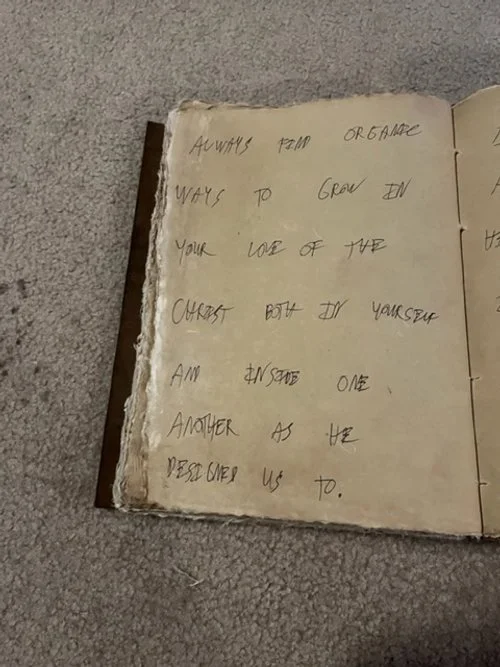 ALWAYS FIND ORGANIC
WAYS TO GROW IN
YOUR LOVE OF THE
CHRIST BOTH IN YOURSELF
AND INSIDE ONE
ANOTHER AS HE
DESIGNED US TO.